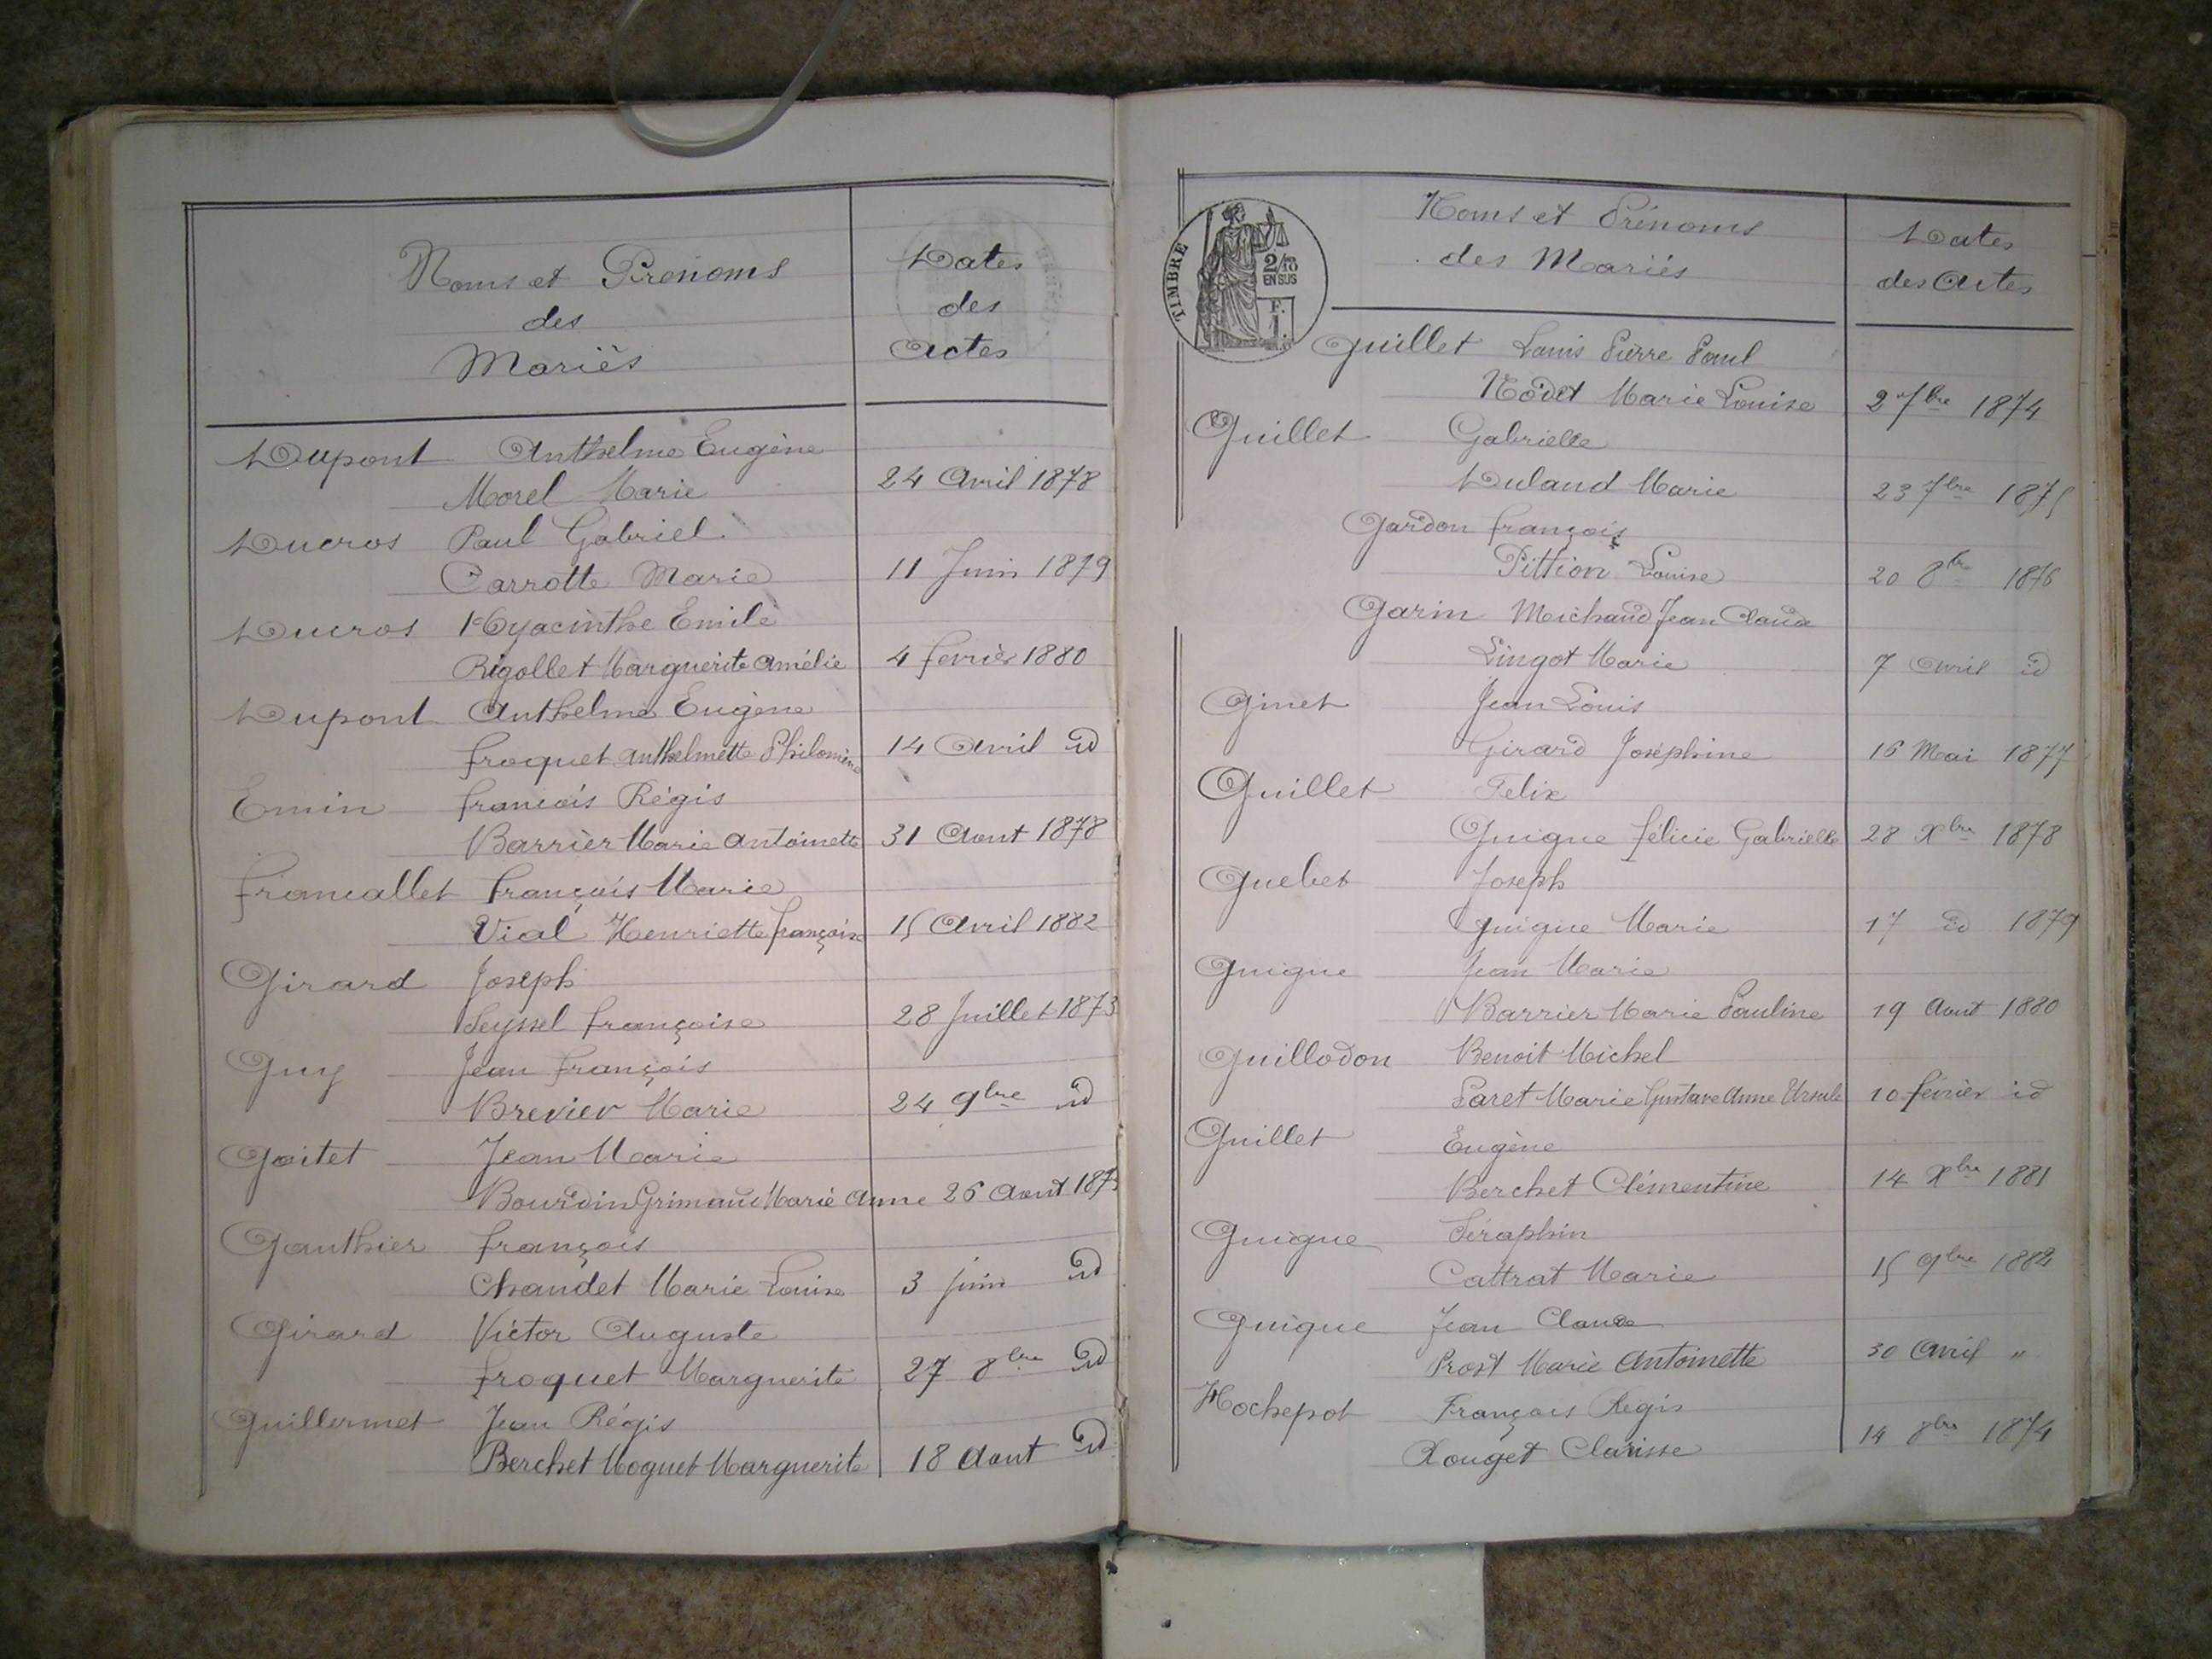 Noms et Prenoms
des
Mariés
Dates
des
Actes
Dupont Anthelme Eugène
Morel Marie 24 Avril 1878
Ducros Paul Gabriel
Carrotte Marie 11 Juin 1879
Ducros Hyacinthe Emile
Rigollet Marguerite Amélie 4 fevrier 1880
Dupont Anthelme Eugène
froquet Anthelmette Philomène 14 Avril id
Emin francois Régis
Barrier Marie Antoinette 31 Aout 1878
francallet françois Marie
Vial Henriette françoise 15 Avril 1882
Girard Joseph
Seyssel françoise 28 Juillet 1873
Guy Jean françois
Brevier Marie 24 9bre id
Goitet Jean Marie
Bourdin Grimaud Marie Anne 26 Aout 187
Gauthier françois
Chaudet Marie Louise 3 juin id
Girard Victor Auguste
froquet Marguerite 27 8bre id
Guillermet Jean Régis
Berchet Moquet Marguerite 18 Aout id
TIMBRE
2/10
EN SUS
F.
1.
Noms et Prénoms
des Mariés
Dates
des Actes
Guillet Louis Pierre Paul
Nodet Marie Louise 2 7bre 1874
Guillet Gabrielle
Duland Marie 23 7bre 1875
Gardon françois
Pittion Louise 20 8bre 1876
Garin Michaud Jean Claude
Lingot Marie 7 Avril id
Ginet Jean Louis
Girard Joséphine 16 Mai 1877
Guillet Felix
Guigue félicie Gabrielle 28 Xbre 1878
Guebet Joseph
Guigue Marie 17 id 1879
Guigue Jean Marie
Barrier Marie Pauline 19 Aout 1880
Guillodon Benoit Michel
Paret Marie Gustave Anne Ursule 10 février id
Guillet Eugène
Berchet Clémentine 14 Xbre 1881
Guigue Séraphin
Cattrat Marie 15 9bre 1882
Guigue Jean Claude
Prost Marie Antoinette 30 Avril "
Hochepot François Régis
Rouget Clarisse 14 8bre 1874